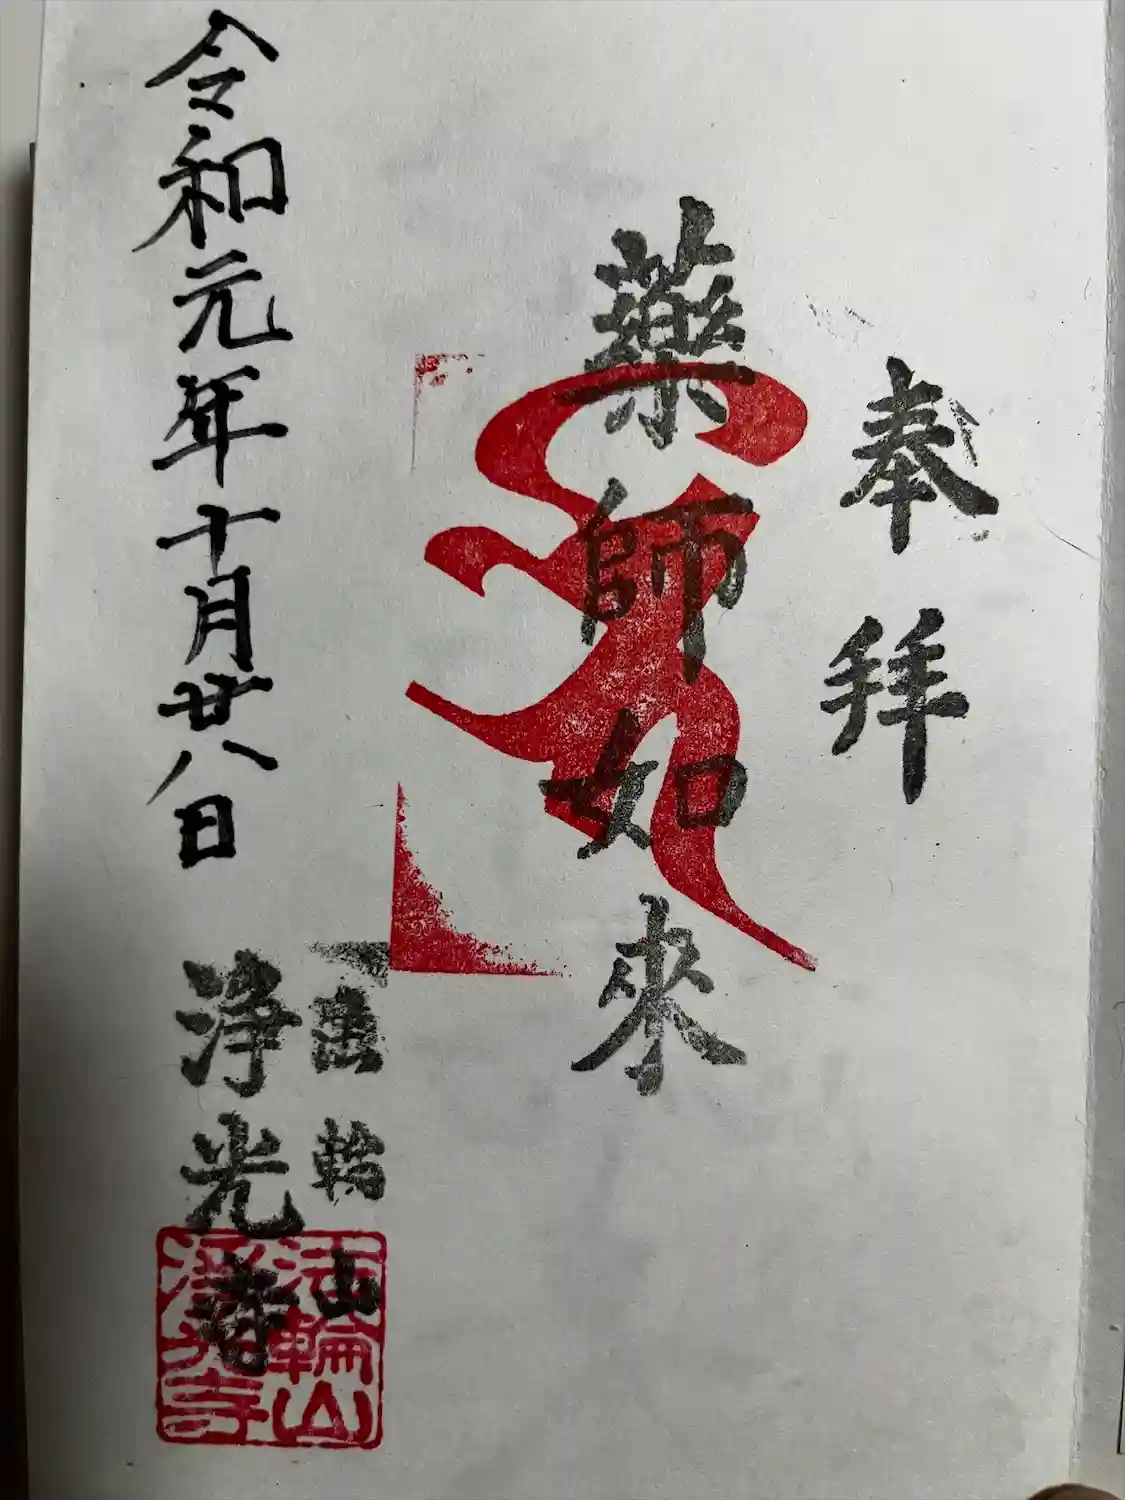 奉拝
薬師如來
輪山
浄光寺
令和元年十月廿八日
法輪山
浄光寺